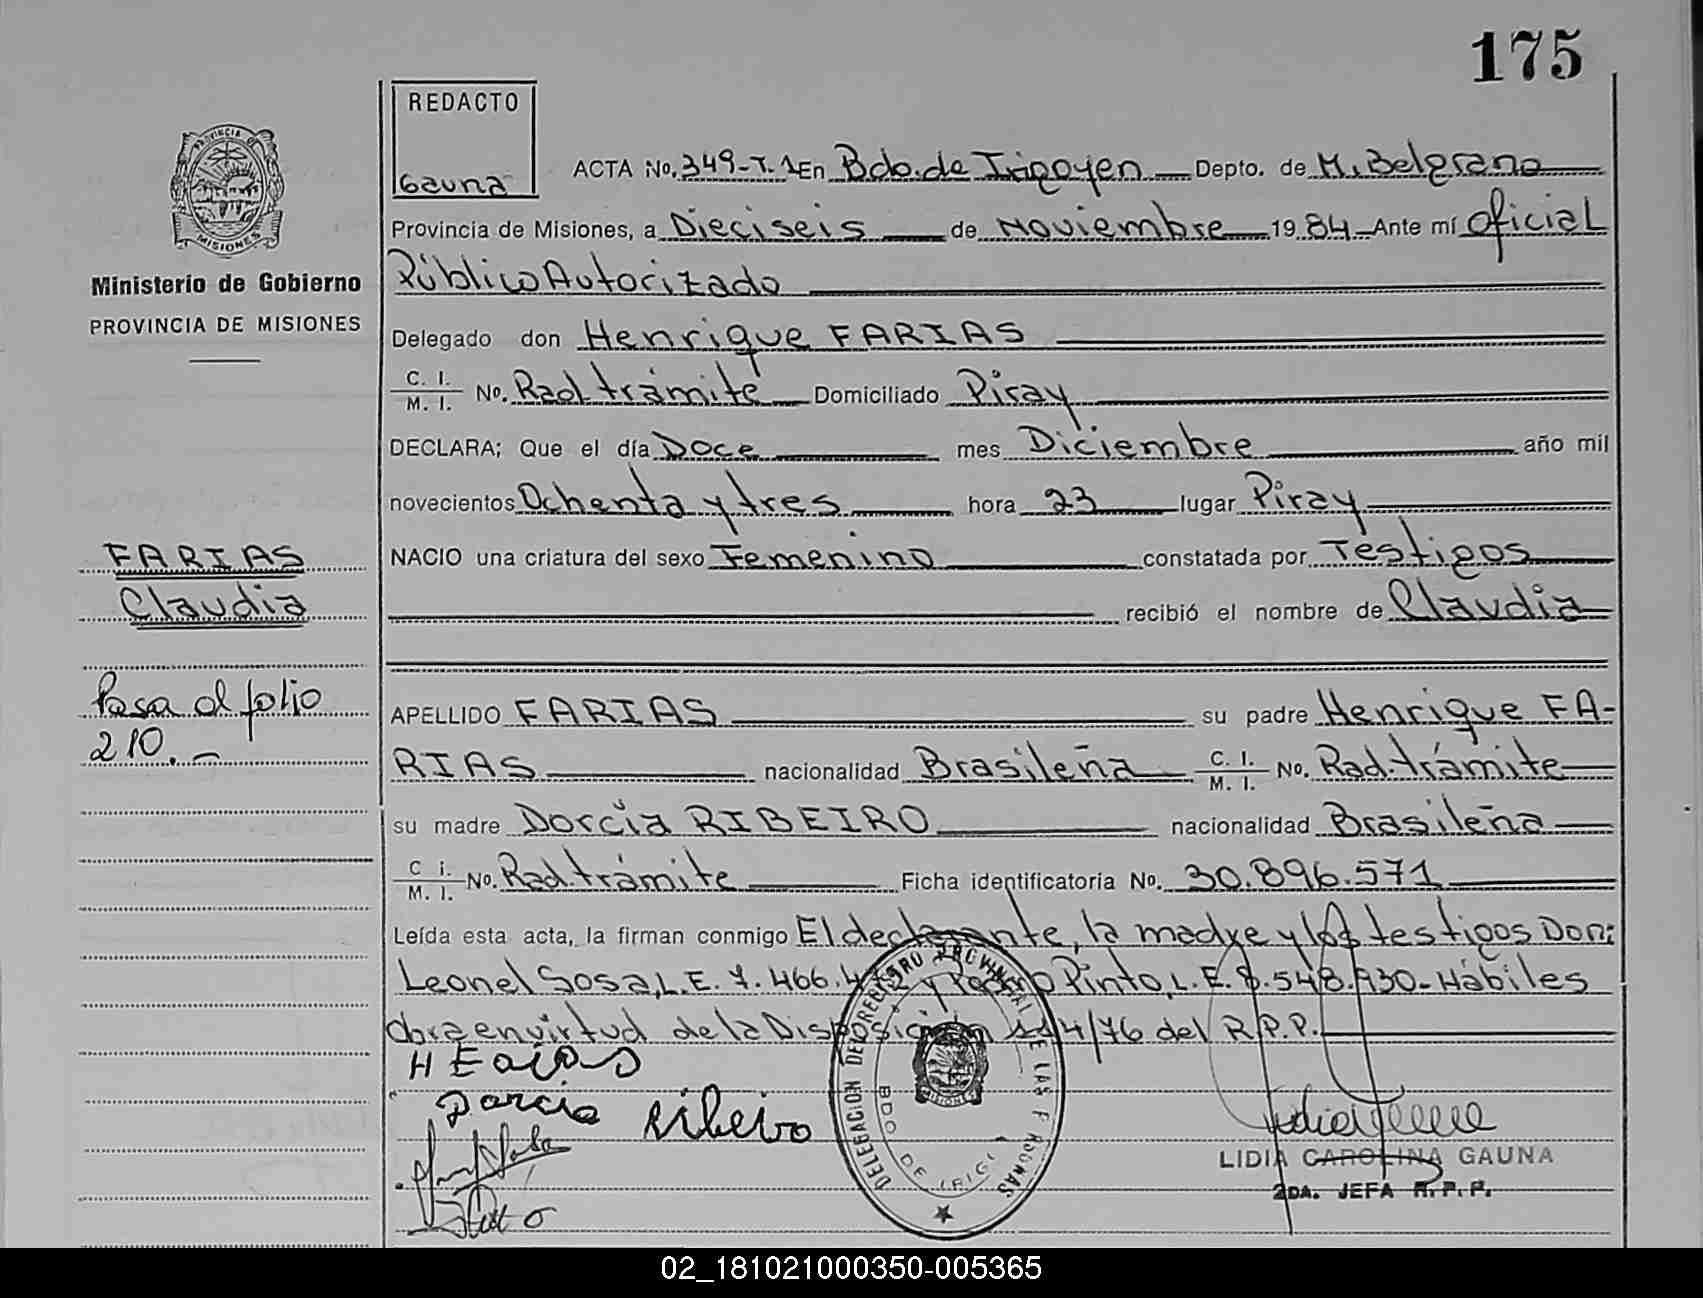 175
REDACTO
Gauna
PROVINCIA DE
MISIONES
Ministerio de Gobierno
PROVINCIA DE MISIONES
ACTA No. 349-T.1 En Bdo. de Irigoyen Depto. de M. Belgrano
Provincia de Misiones, a Dieciseis de Noviembre 1984 Ante mí Oficial
Público Autorizado
Delegado don Henrique FARIAS
C. I.
M. I. No. Rad. trámite Domiciliado Piray
DECLARA; Que el día Doce mes Diciembre año mil
novecientos Ochenta y tres hora 23 lugar Piray
FARIAS
NACIO una criatura del sexo Femenino constatada por Testigos
Claudia
recibió el nombre de Claudia
Pasa al folio
210.-
APELLIDO FARIAS su padre Henrique FA-
RIAS nacionalidad Brasileña C. I. M. I. No. Rad. trámite
su madre Dorcia RIBEIRO nacionalidad Brasileña
C i. M. I. No. Rad. trámite Ficha identificatoria No. 30.896.571
Leída esta acta, la firman conmigo El declarante, la madre y los testigos Don:
Leonel Sosa, L.E. 7.466. y Pedro Pinto, L.E. 8.548.930- Hábiles
obra en virtud de la Disposición 114/76 del R.P.P.
Dorcia Ribeiro
DELEGACION DEL REGISTRO PROVINCIAL DE LAS PERSONAS
BDO DE IRIG
LIDIA CAROLINA GAUNA
2DA. JEFA R.P.P.
02_181021000350-005365